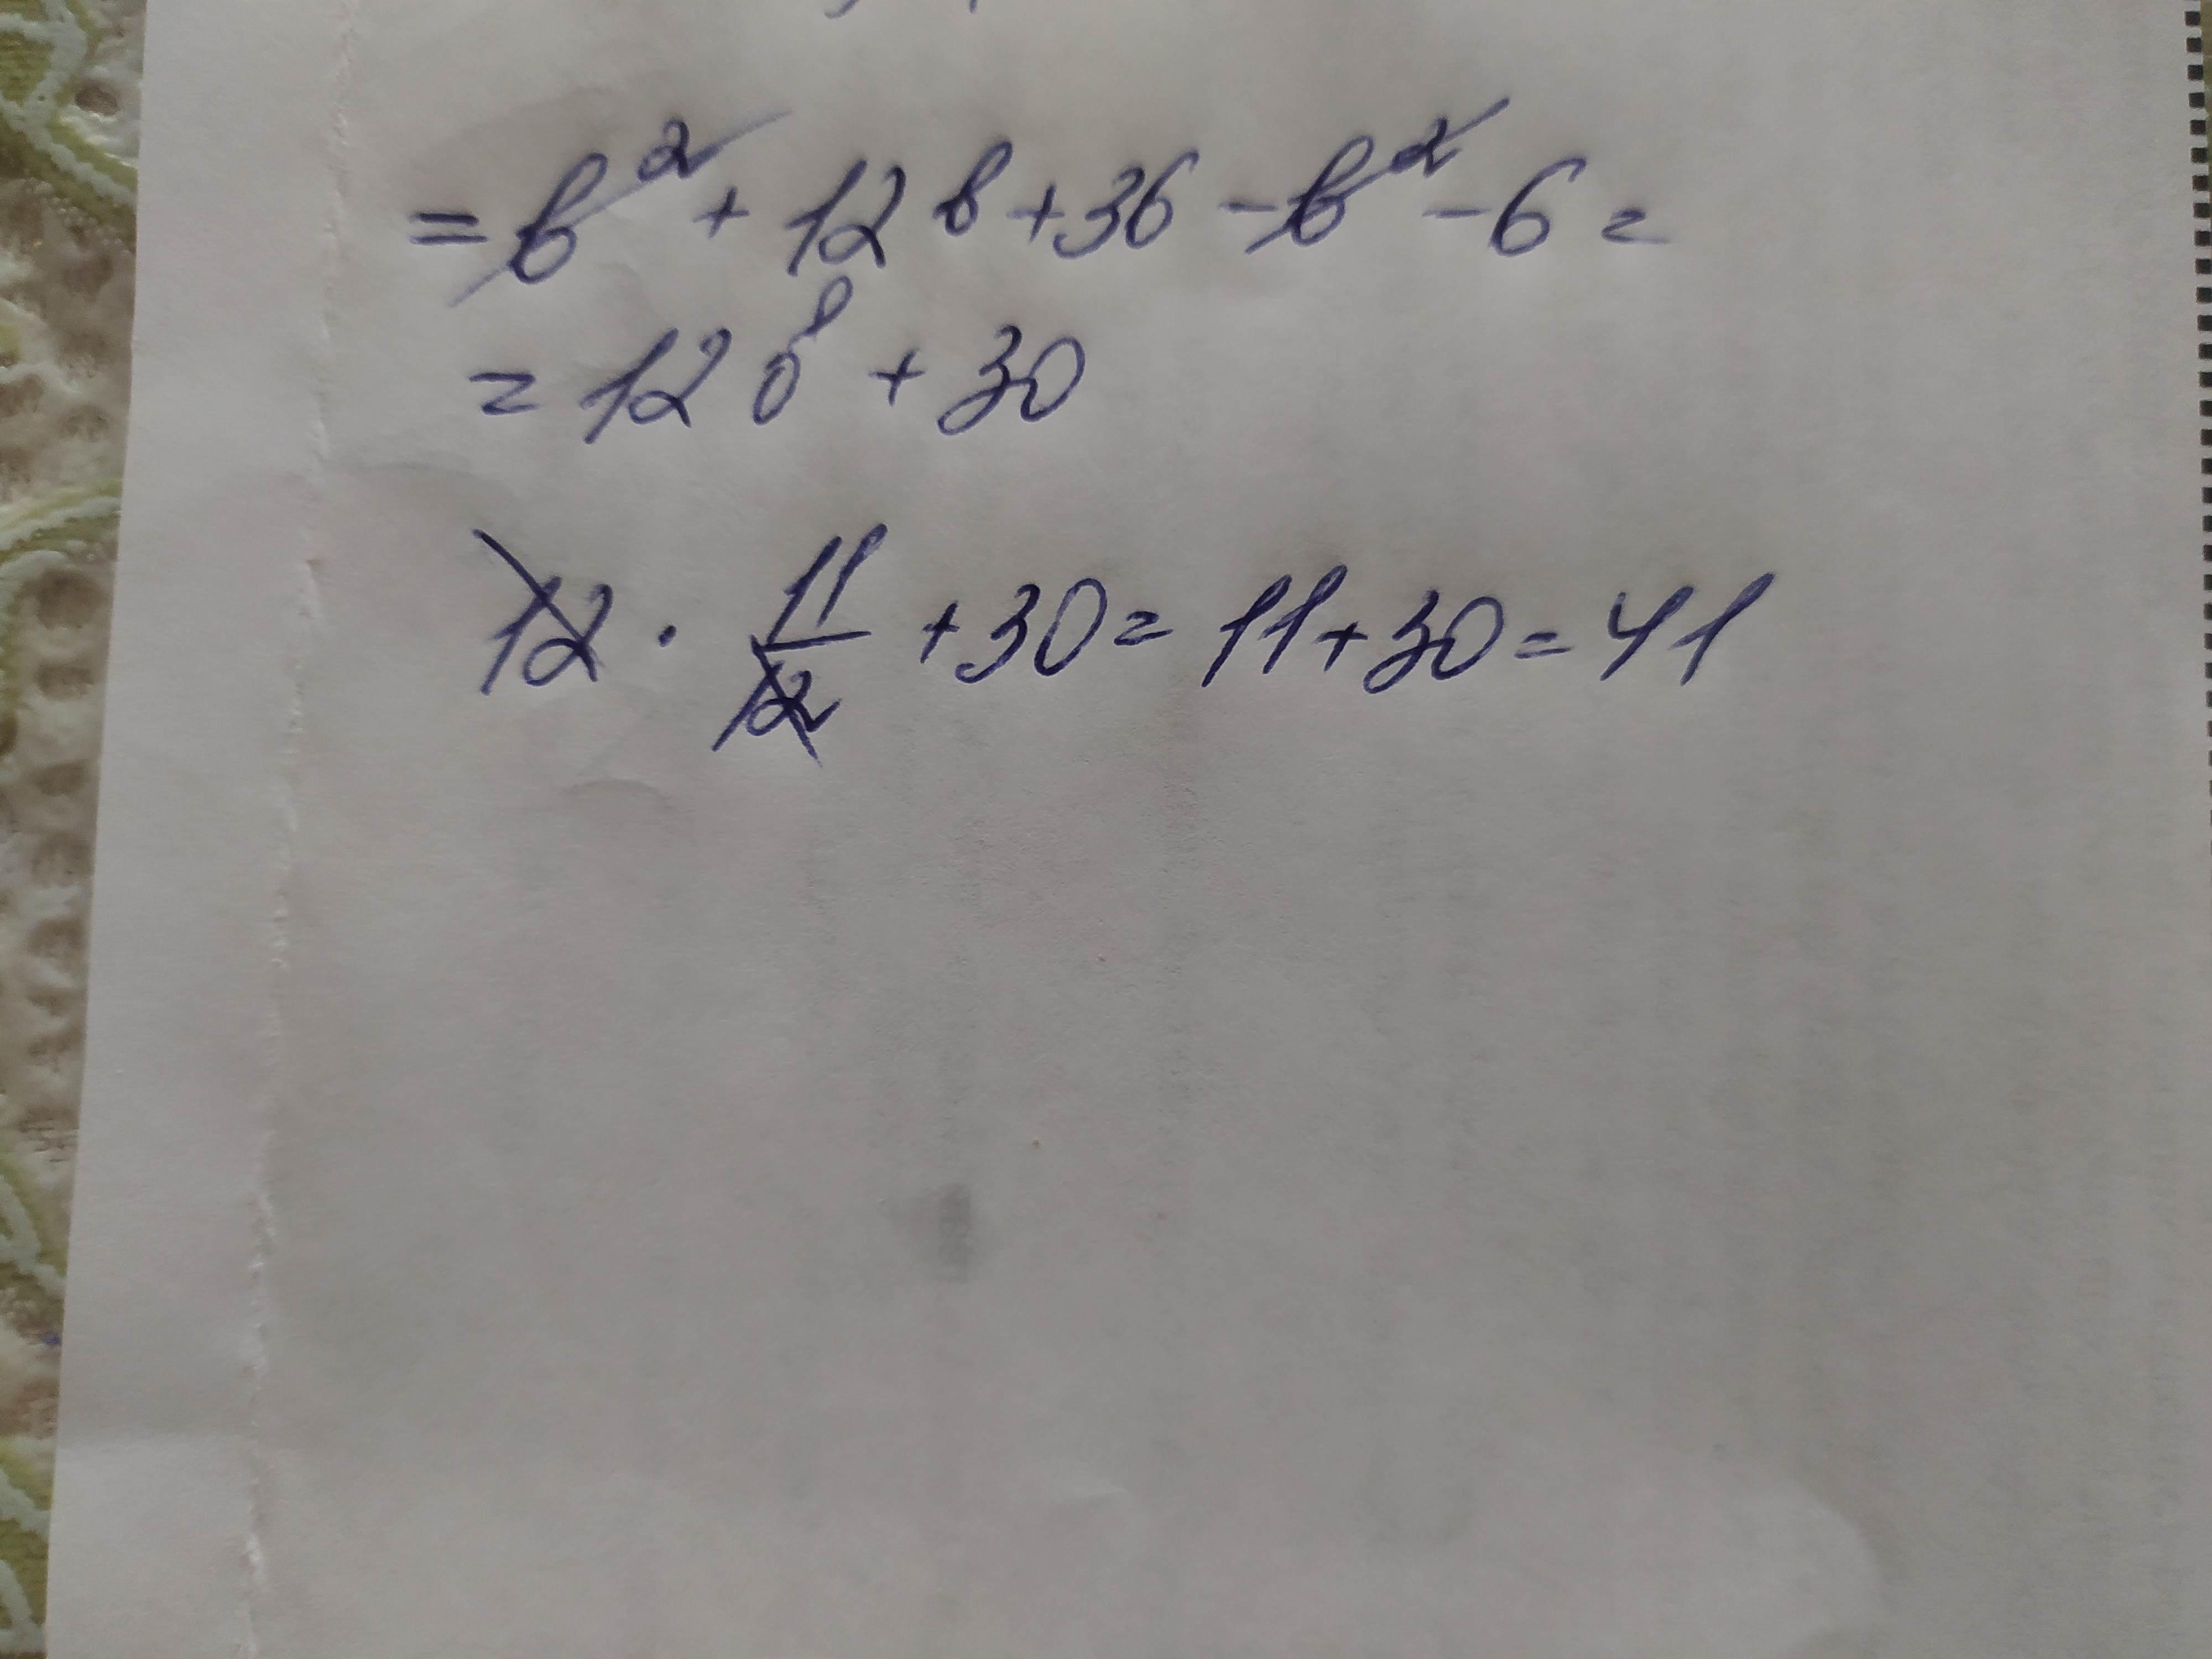 = b² + 12b + 36 - b² - 6 =
= 12b + 30
12 · 11/12 + 30 = 11 + 30 = 41